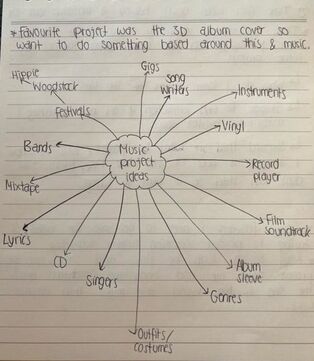 * Favourite project was the 3D album cover so
want to do something based around this & music.
Gigs
Hippie
Woodstock
Song
writers
Instruments
Festivals
Vinyl
Bands
Music
project
ideas
Record
player
Mixtape
Film
soundtrack
Lyrics
CD
Album
sleeve
Singers
Genres
Outfits/
costumes